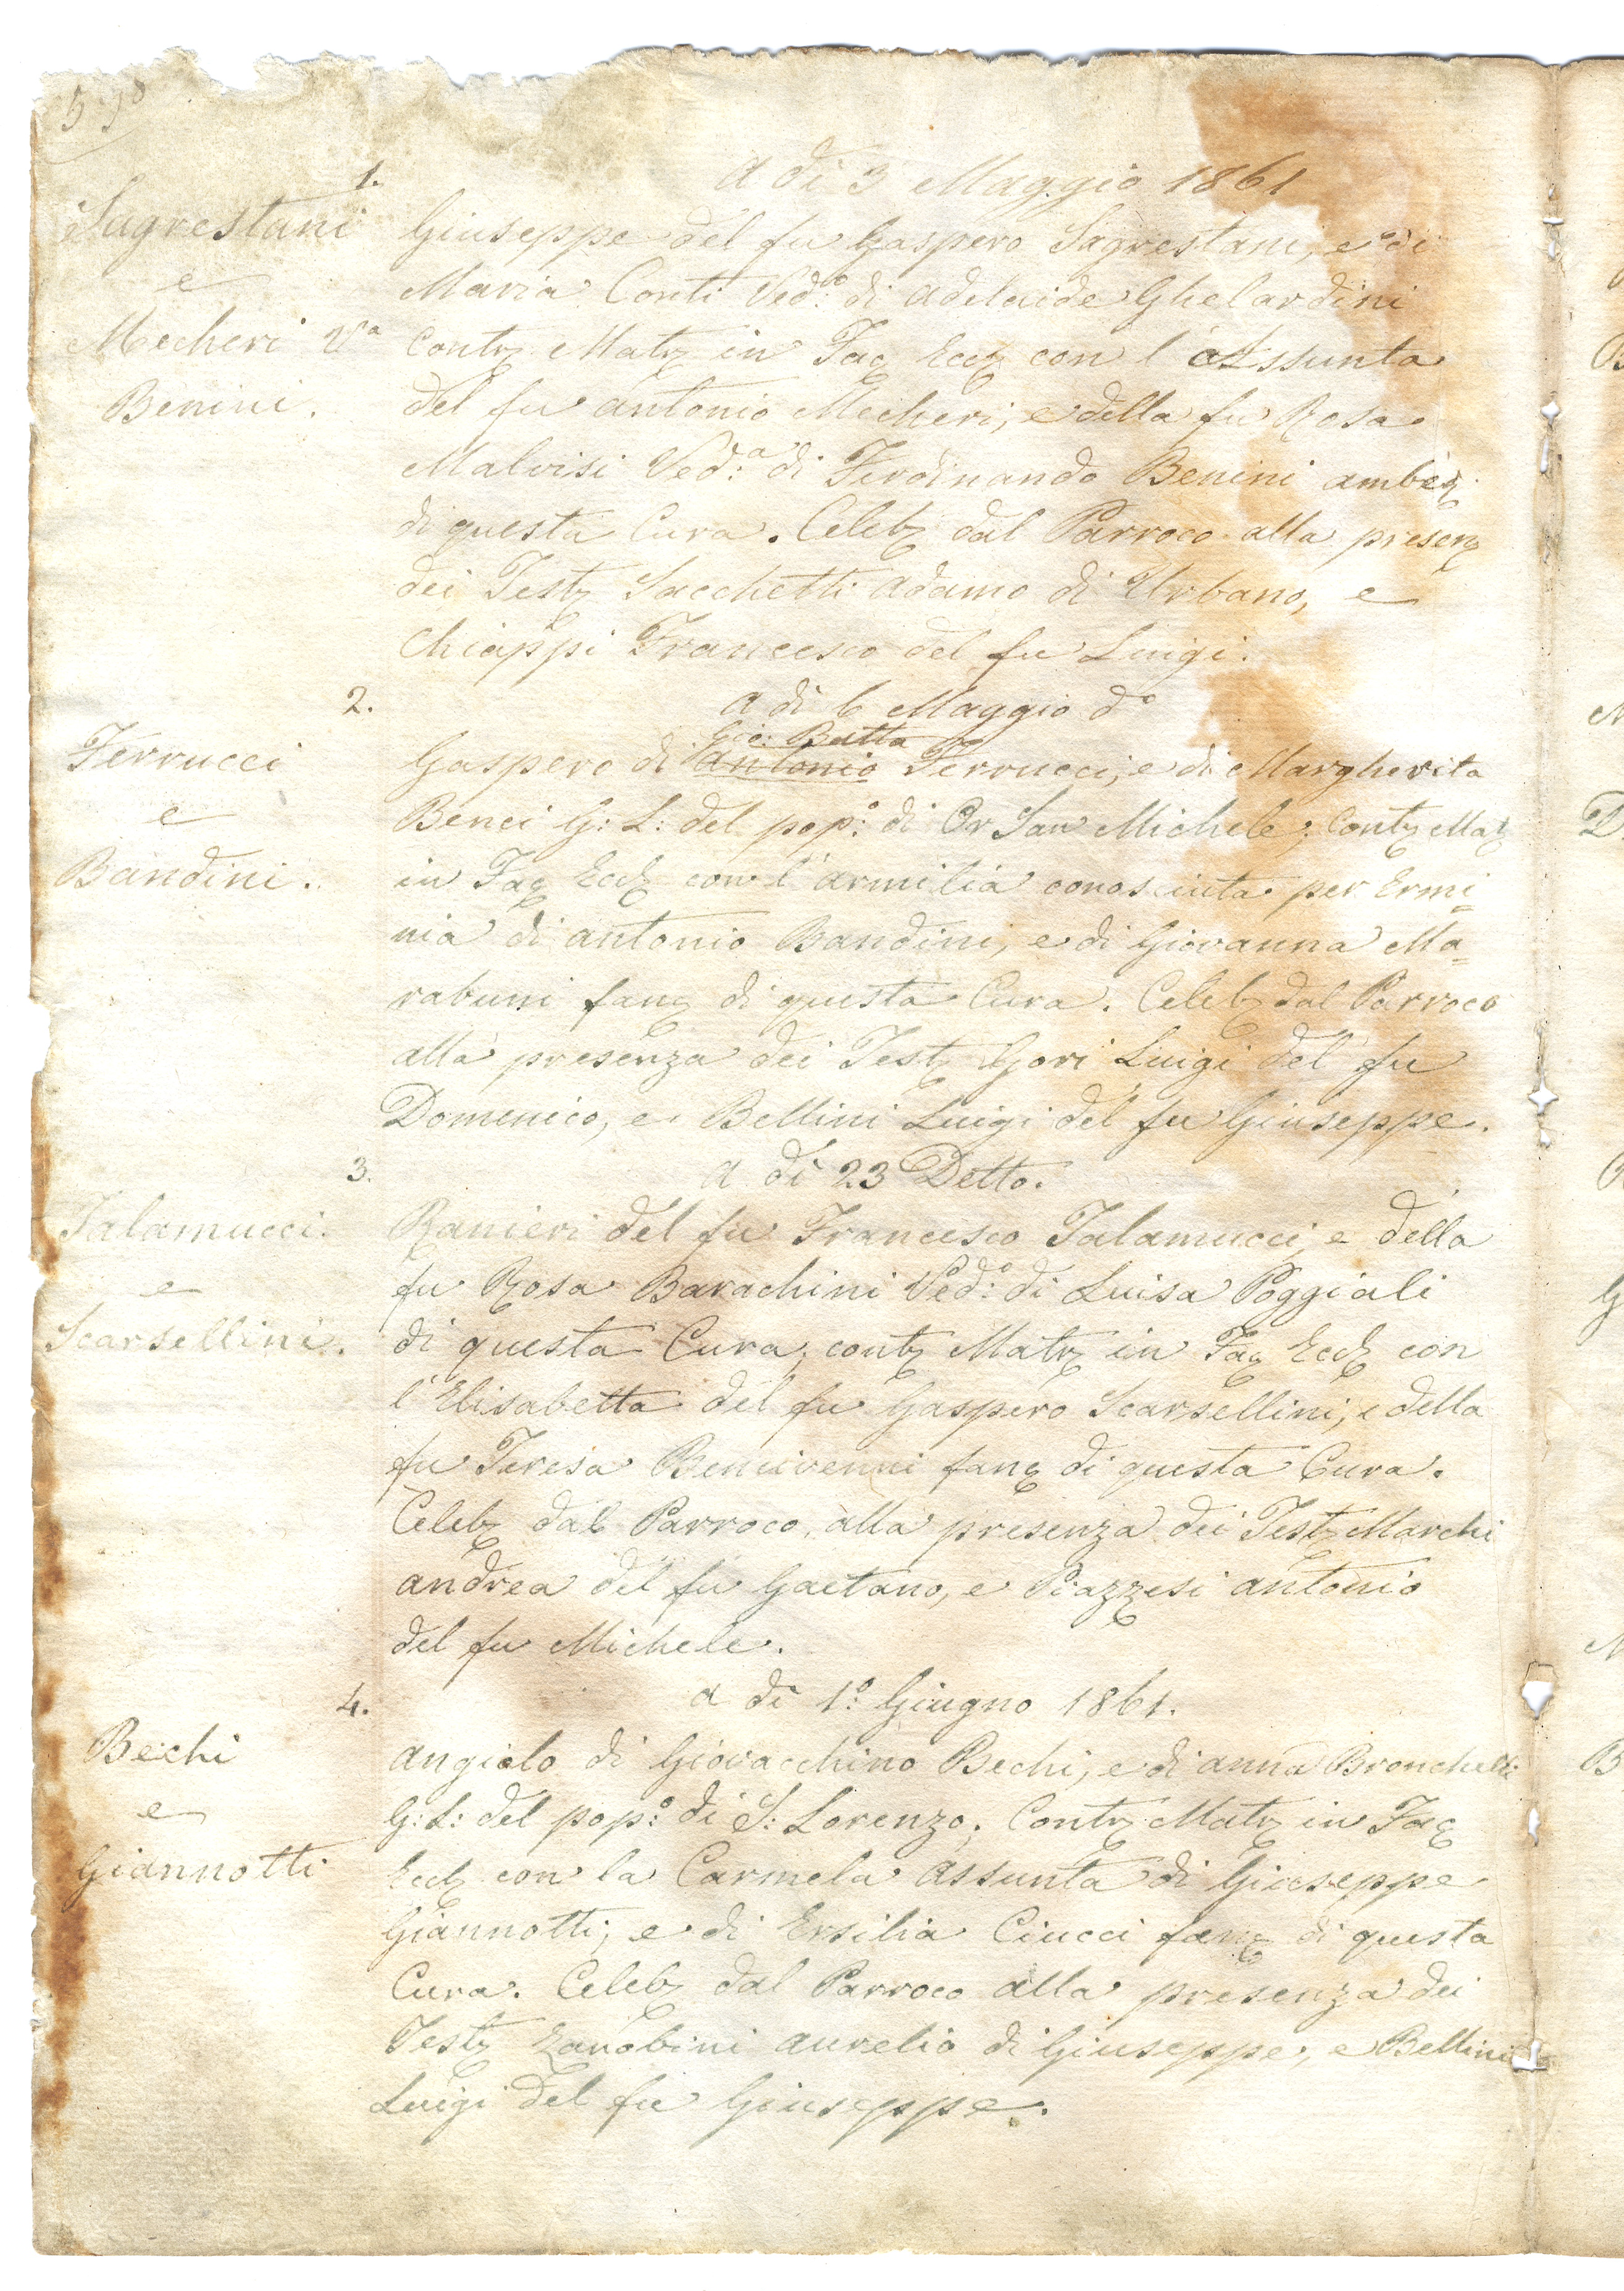 1.
A dì 3 Maggio 1861
Sagrestani
e
Mecheri Va
Benini.
Giuseppe del fu Gaspero Sagrestani, e di
Maria Conti Ved:o di Adelaide Ghelardini
Contz Matz in Fac Eccz con l'Assunta
del fu Antonio Mecheri, e della fu Rosa
Malvisi Ved:a di Ferdinando Benini ambez
di questa Cura. Celebz dal Parroco alla presenz
dei Testz Sacchetti Adamo di Urbano, e
Chiappi Francesco del fu Luigi.
2.
A dì 6 Maggio do
Ferrucci
e
Bandini.
Gio: Batta
Gaspero di Antonio Ferrucci, e di Margherita
Benci G: L: del pop:o di Or San Michele; Contz Matz
in Fac Eccz con l'Armilia conosciuta per Ermi=
nia di Antonio Bandini, e di Giovanna Ma=
rabuni fanc di questa Cura. Celebz dal Parroco
alla presenza dei Testz Gori Luigi del fu
Domenico, e Bellini Luigi del fu Giuseppe.
3.
A dì 23 Detto.
Talamucci.
e
Scarsellini.
Ranieri del fu Francesco Talamucci, e della
fu Rosa Barachini Ved:o di Luisa Poggiali
di questa Cura, contz Matz in Fac Eccz con
l'Elisabetta del fu Gaspero Scarsellini, e della
fu Teresa Benivenni fanc di questa Cura.
Celebz dal Parroco, alla presenza dei Testz Marchi
Andrea del fu Gaetano, e Piazzesi Antonio
del fu Michele.
4.
A dì 1:o Giugno 1861.
Bechi
e
Giannotti
Angiolo di Giovacchino Bechi, e di Anna Bronchelli
G: L: del pop:o di S: Lorenzo; Contz Matz in Fac
Eccz con la Carmela Assunta di Giuseppe
Giannotti, e di Ersilia Ciucci fanc di questa
Cura. Celebz dal Parroco alla presenza dei
Testz Zanobini Aurelio di Giuseppe, e Bellini
Luigi del fu Giuseppe.